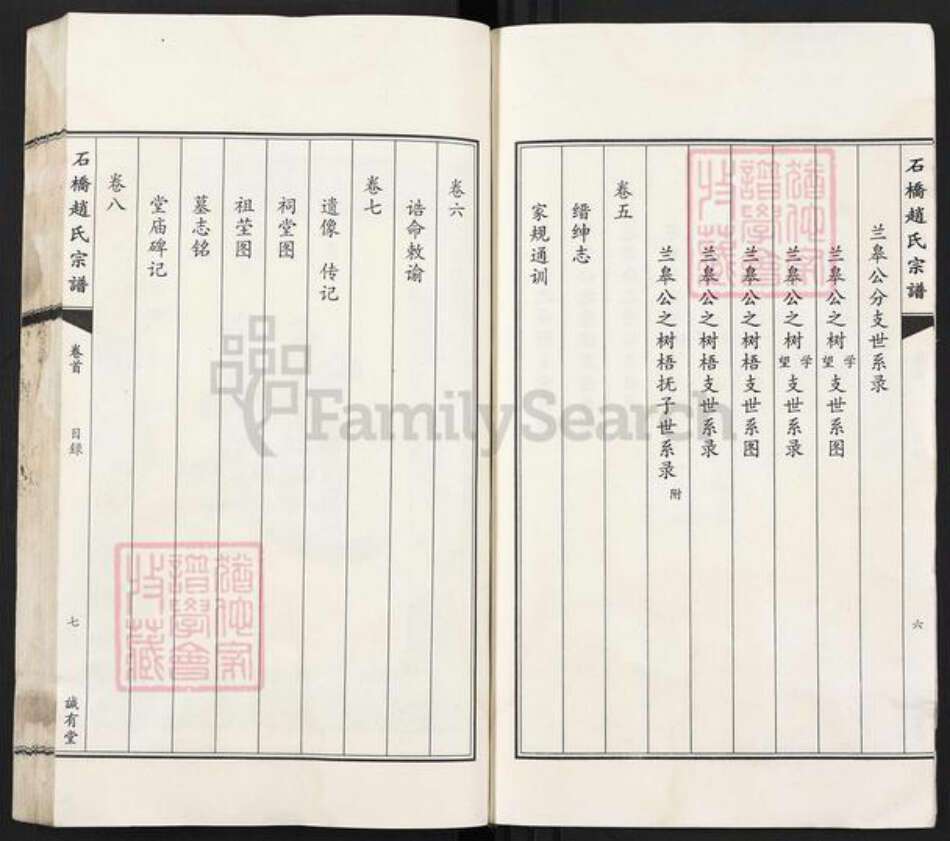 石橋趙氏宗譜
六
兰皋公分支世系录
兰皋公之树学望支世系图
兰皋公之树学望支世系录
兰皋公之树梧支世系图
兰皋公之树梧支世系录
兰皋公之树梧抚子世系录 附
卷五
缙绅志
家规通训
卷六
诰命敕谕
卷七
遗像 传记
祠堂图
祖茔图
墓志铭
堂庙碑记
卷八
石橋趙氏宗譜
卷首 目録
七
誠有堂
FamilySearch